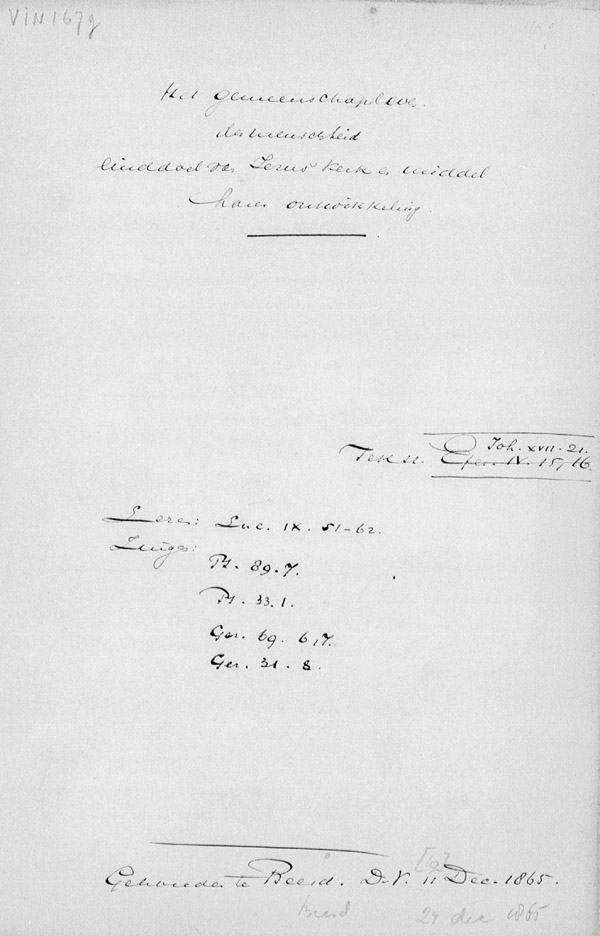 VIN 167g
Het gemeenschapsleven
der menschheid
einddoel van Jezus' kerk en middel
harer ontwikkeling.
Joh. XVII. 21.
Tekst. Efez. IV. 15, 16.
Lezen: Luc. IX. 51-62.
Zingen:
Ps. 89. 7.
Ps. 33. 1.
Gez. 69. 6, 7.
Gez. 31. 8.
Gehouden te Beesd. D.V. 11 Dec. 1865.
Beesd 24 dec 1865